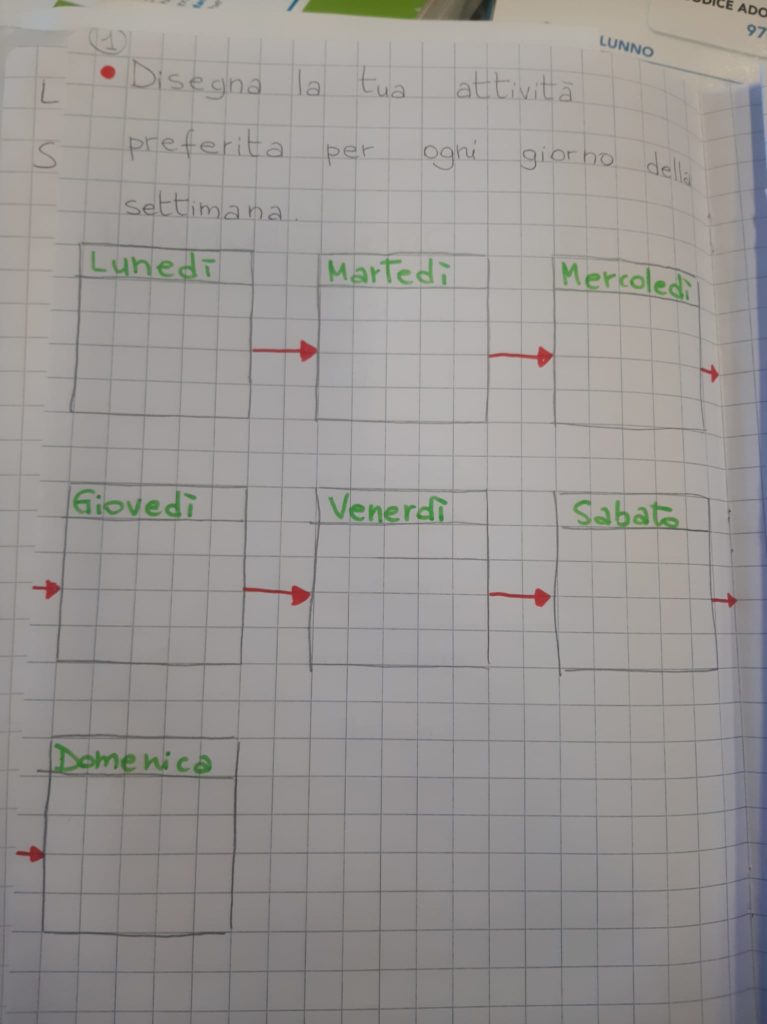 ODICE ADO
97
LUNNO
(1)
L
• Disegna la tua attività
S
preferita per ogni giorno della
settimana.
Lunedì
Martedì
Mercoledì
Giovedì
Venerdì
Sabato
Domenica